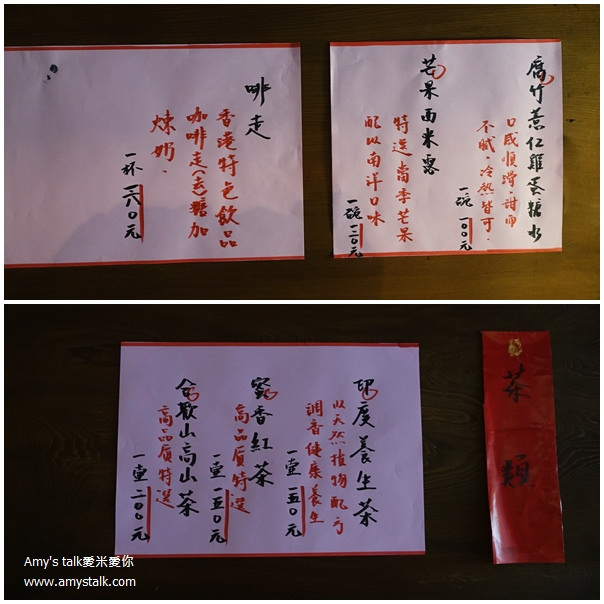 腐竹薏仁雞蛋糖水
口感順滑·甜而
不膩·冷熱皆可·
一碗 一00元
芒果西米露
特選當季芒果
配以南洋口味
一碗 一三0元
啡走
香港特色飲品
咖啡走(去)糖加
煉奶·
一杯 一八0元
茶類
印度養生茶
以天然植物配方
調香健康養生
一壺 一五0元
蜜香紅茶
高品質特選
一壺 一五0元
合歡山高山茶
高品質特選
一壺 二00元
Amy's talk愛米愛你
www.amystalk.com